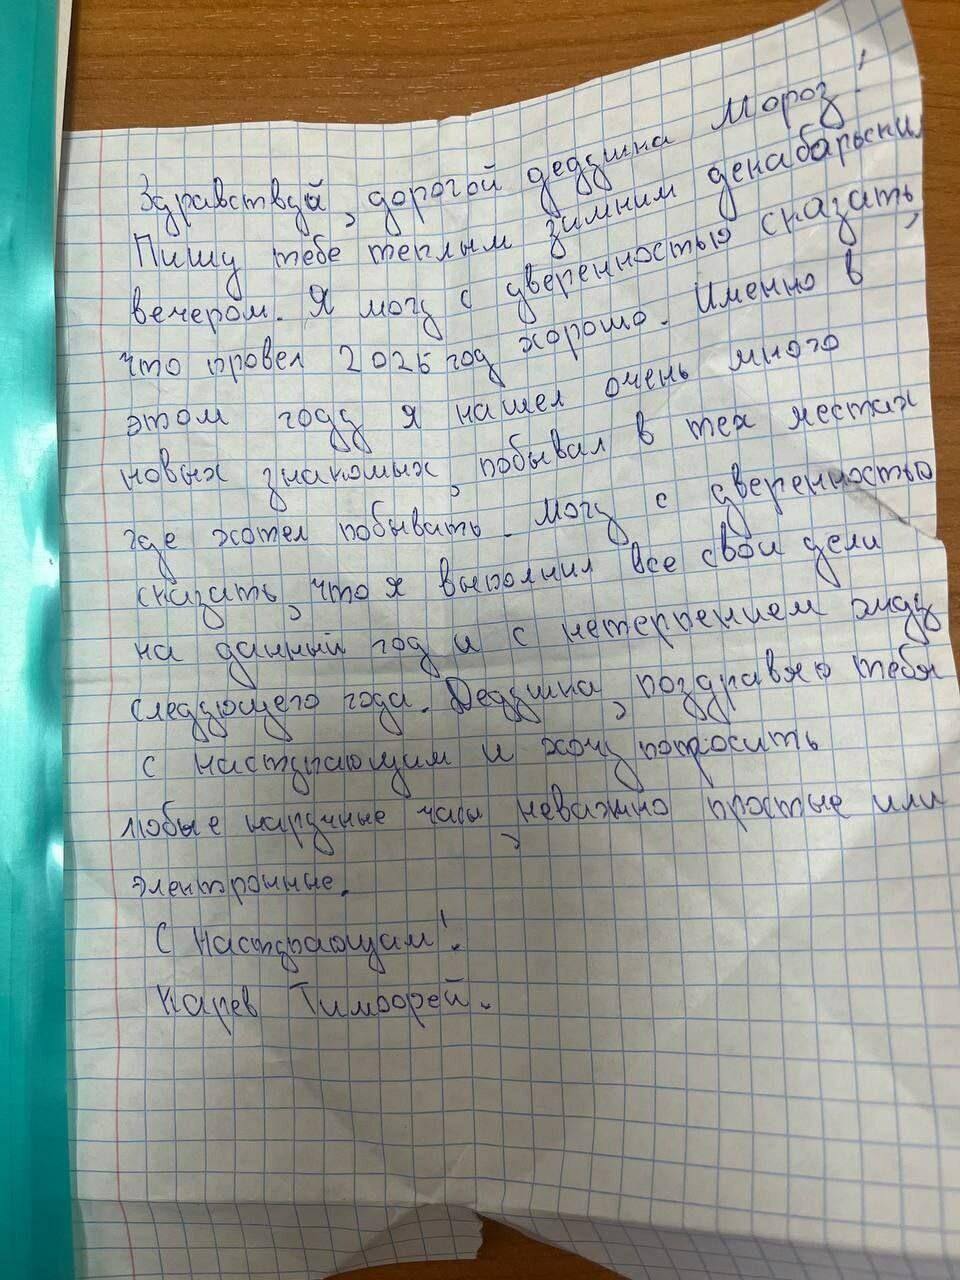 Здравствуй, дорогой дедушка Мороз!
Пишу тебе теплым зимним денабарьским
вечером. Я могу с уверенностью сказать,
что провел 2025 год хорошо. Именно в
этом году я нашел очень много
новых знакомых, побывал в тех местах
где хотел побывать. могу с уверенностью
сказать, что я выполнил все свои цели
на данный год и с нетерпением жду
следующего года. Дедушка, поздравяю тебя
с наступающим и хочу попросить
любые наручные часы, неважно простые или
электронные.
С Наступающим!
Карев Тимофей.